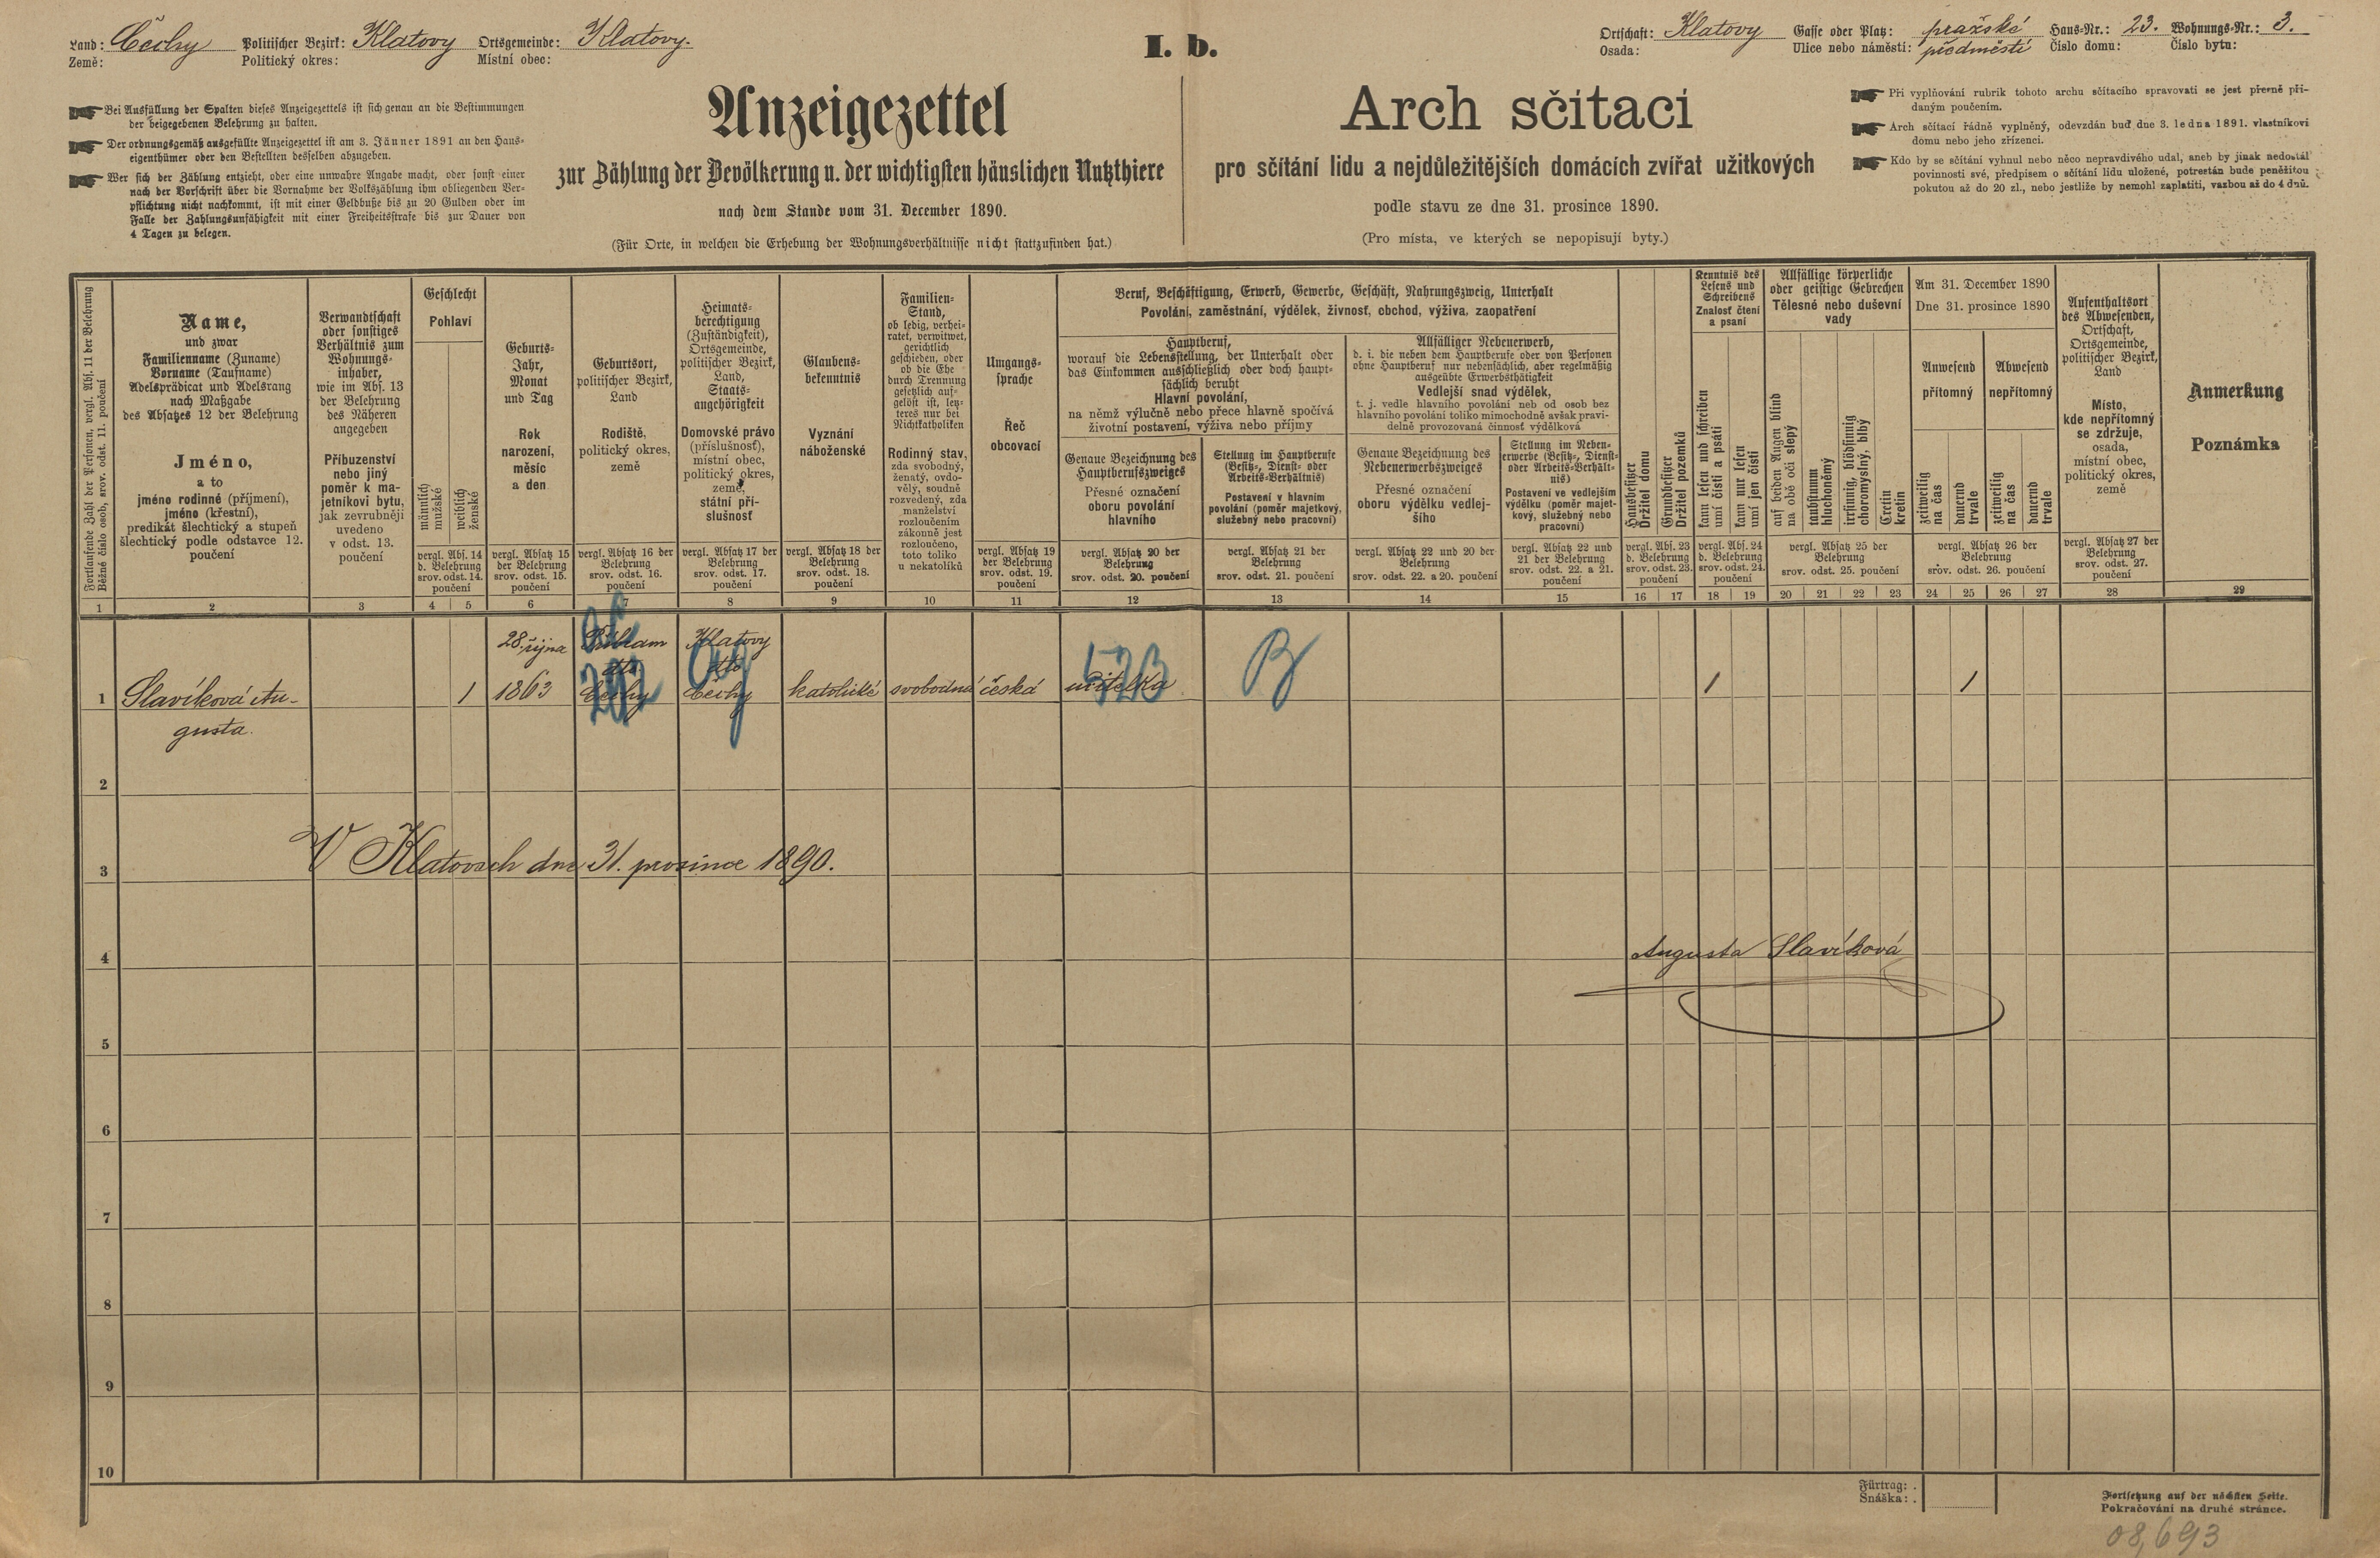 Land: Čechy Politischer Bezirk: Klatovy Ortsgemeinde: Klatovy.
Země: Politický okres: Místní obec:
I. b.
Ortschaft: Klatovy Gasse oder Platz: pražské Haus-Nr.: 23. Wohnungs-Nr.: 3.
Osada: Ulice nebo náměstí: předměstí Číslo domu: Číslo bytu:
Bei Ausfüllung der Spalten dieses Anzeigezettels ist sich genau an die Bestimmungen
der beigegebenen Belehrung zu halten.
Der ordnungsgemäß ausgefüllte Anzeigezettel ist am 3. Jänner 1891 an den Haus-
eigenthümer oder den Bestellten desselben abzugeben.
Wer sich der Zählung entzieht, oder eine unwahre Angabe macht, oder sonst einer
nach der Vorschrift über die Vornahme der Volkszählung ihm obliegenden Ver-
pflichtung nicht nachkommt, ist mit einer Geldbuße bis zu 20 Gulden oder im
Falle der Zahlungsunfähigkeit mit einer Freiheitsstrafe bis zur Dauer von
4 Tagen zu belegen.
Anzeigezettel
zur Zählung der Bevölkerung u. der wichtigsten häuslichen Nutzthiere
nach dem Stande vom 31. December 1890.
(Für Orte, in welchen die Erhebung der Wohnungsverhältnisse nicht stattzufinden hat.)
Arch sčítací
pro sčítání lidu a nejdůležitějších domácích zvířat užitkových
podle stavu ze dne 31. prosince 1890.
(Pro místa, ve kterých se nepopisují byty.)
Při vyplňování rubrik tohoto archu sčítacího spravovati se jest přesně při-
daným poučením.
Arch sčítací řádně vyplněný, odevzdán buď dne 3. ledna 1891. vlastníkovi
domu nebo jeho zřízenci.
Kdo by se sčítání vyhnul nebo něco nepravdivého udal, aneb by jinak nedostál
povinnosti své, předpisem o sčítání lidu uložené, potrestán bude peněžitou
pokutou až do 20 zl., nebo jestliže by nemohl zaplatiti, vazbou až do 4 dnů.
Fortlaufende Zahl der Personen, vergl. Abs. 11 der Belehrung
Běžné číslo osob, srov. odst. 11. poučení
Name,
und zwar
Familienname (Zuname)
Vorname (Taufname)
Adelsprädicat und Adelsrang
nach Maßgabe
des Absatzes 12 der Belehrung
Jméno,
a to
jméno rodinné (příjmení),
jméno (křestní),
predikát šlechtický a stupeň
šlechtický podle odstavce 12.
poučení
Verwandtschaft
oder sonstiges
Verhältnis zum
Wohnungs-
inhaber,
wie im Abs. 13
der Belehrung
des Näheren
angegeben
Příbuzenství
nebo jiný
poměr k ma-
jetníkovi bytu,
jak zevrubněji
uvedeno
v odst. 13.
poučení
Geschlecht
Pohlaví
männlich
mužské
weiblich
ženské
vergl. Abs. 14
d. Belehrung
srov. odst. 14.
poučení
Geburts-
Jahr,
Monat
und Tag
Rok
narození,
měsíc
a den
vergl. Absatz 15
der Belehrung
srov. odst. 15.
poučení
Geburtsort,
politischer Bezirk,
Land
Rodiště,
politický okres,
země
vergl. Absatz 16 der
Belehrung
srov. odst. 16.
poučení
Heimats-
berechtigung
(Zuständigkeit),
Ortsgemeinde,
politischer Bezirk,
Land,
Staats-
angehörigkeit
Domovské právo
(příslušnosť),
místní obec,
politický okres,
země,
státní pří-
slušnosť
vergl. Absatz 17 der
Belehrung
srov. odst. 17.
poučení
Glaubens-
bekenntnis
Vyznání
náboženské
vergl. Absatz 18 der
Belehrung
srov. odst. 18.
poučení
Familien-
Stand,
ob ledig, verhei-
ratet, verwitwet,
gerichtlich
geschieden, oder
ob die Ehe
durch Trennung
gesetzlich auf-
gelöst ist, letz-
teres nur bei
Nichtkatholiken
Rodinný stav,
zda svobodný,
ženatý, ovdo-
věly, soudně
rozvedený, zda
manželství
rozloučením
zákonně jest
rozloučeno,
toto toliko
u nekatolíků
Umgangs-
sprache
Řeč
obcovací
vergl. Absatz 19
der Belehrung
srov. odst. 19.
poučení
Beruf, Beschäftigung, Erwerb, Gewerbe, Geschäft, Nahrungszweig, Unterhalt
Povolání, zaměstnání, výdělek, živnosť, obchod, výživa, zaopatření
Hauptberuf,
worauf die Lebensstellung, der Unterhalt oder
das Einkommen ausschließlich oder doch haupt-
sächlich beruht
Hlavní povolání,
na němž výlučně nebo přece hlavně spočívá
životní postavení, výživa nebo příjmy
Genaue Bezeichnung des
Hauptberufszweiges
Přesné označení
oboru povolání
hlavního
vergl. Absatz 20 der
Belehrung
srov. odst. 20. poučení
Stellung im Hauptberufe
(Besitz-, Dienst- oder
Arbeits-Verhältnis)
Postavení v hlavním
povolání (poměr majetkový,
služebný nebo pracovní)
vergl. Absatz 21 der
Belehrung
srov. odst. 21. poučení
Allfälliger Nebenerwerb,
d. i. die neben dem Hauptberufe oder von Personen
ohne Hauptberuf nur nebensächlich, aber regelmäßig
ausgeübte Erwerbsthätigkeit
Vedlejší snad výdělek,
t. j. vedle hlavního povolání neb od osob bez
hlavního povolání toliko mimochodně avšak pravi-
delně provozovaná činnosť výdělková
Genaue Bezeichnung des
Nebenerwerbszweiges
Přesné označení
oboru výdělku vedlej-
šího
vergl. Absatz 22 und 20 der
Belehrung
srov. odst. 22. a 20. poučení
Stellung im Neben-
erwerbe (Besitz-, Dienst-
oder Arbeits-Verhält-
nis)
Postavení ve vedlejším
výdělku (poměr majet-
kový, služebný nebo
pracovní)
vergl. Absatz 22 und
21 der Belehrung
srov. odst. 22. a 21.
poučení
Hausbesitzer
Držitel domu
Grundbesitzer
Držitel pozemků
vergl. Abs. 23
d. Belehrung
srov. odst. 23.
poučení
Kenntnis des
Lesens und
Schreibens
Znalosť čtení
a psaní
kann lesen und schreiben
umí čísti a psáti
kann nur lesen
umí jen čísti
vergl. Abs. 24
d. Belehrung
srov. odst. 24.
poučení
Allfällige körperliche
oder geistige Gebrechen
Tělesné nebo duševní
vady
auf beiden Augen blind
na obě oči slepý
taubstumm
hluchoněmý
irrsinnig, blödsinnig
choromyslný, blbý
Cretin
kretin
vergl. Absatz 25 der
Belehrung
srov. odst. 25. poučení
Am 31. December 1890
Dne 31. prosince 1890
Anwesend
přítomný
Abwesend
nepřítomný
zeitweilig
na čas
dauernd
trvale
zeitweilig
na čas
dauernd
trvale
vergl. Absatz 26 der
Belehrung
srov. odst. 26. poučení
Aufenthaltsort
des Abwesenden,
Ortschaft,
Ortsgemeinde,
politischer Bezirk,
Land
Místo,
kde nepřítomný
se zdržuje,
osada,
místní obec,
politický okres,
země
vergl. Absatz 27 der
Belehrung
srov. odst. 27.
poučení
Anmerkung
Poznámka
1 2 3 4 5 6 7 8 9 10 11 12 13 14 15 16 17 18 19 20 21 22 23 24 25 26 27 28 29
28. října Příbram Klatovy
dto dto
1 Slavíková Au- 1 1863 Čechy Čechy katolické svobodná česká učitelka 1 1
gusta.
292 523 B
2
V Klatovech dne 31. prosince 1890.
3
Augusta Slavíková
4
5
6
7
8
9
10
Fürtrag: .
Snáška: .
Fortsetzung auf der nächsten Seite.
Pokračování na druhé stránce.
08,693